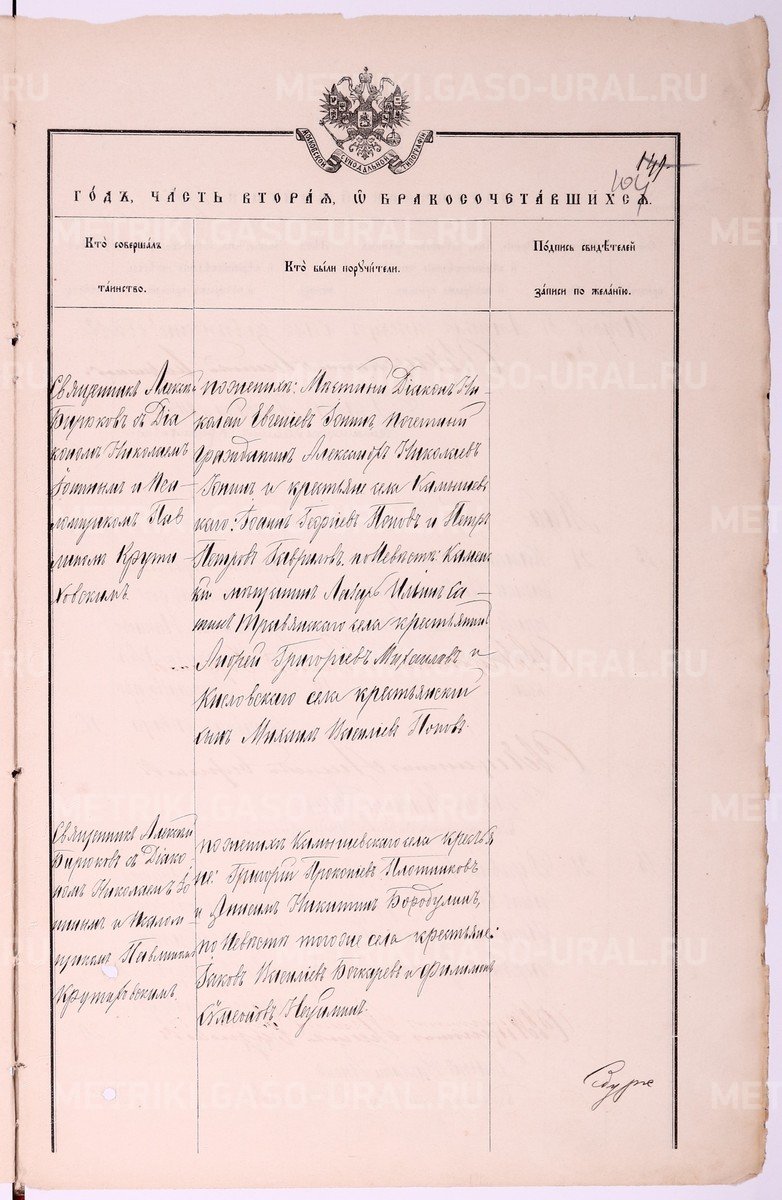 МОСКОВСКОЙ СѴНОДАЛЬНОЙ ТИПОГРАФІИ
149
104
ГО́ДЪ, ЧА́СТЬ ВТОРА́Я, Ѡ БРАКОСОЧЕТА́ВШИХСЯ.
Кто̀ соверша́лъ
та́инство.
Кто̀ были поручи́тели.
По́дпись свидѣ́телей
за́писи по жела́нію.
Священникъ Алексѣй
Бирюковъ съ Діа
кономъ Николаемъ
Іонинымъ и Пса
ломщикомъ Пав
линомъ Крути
ховскимъ.
по женихѣ: Мѣстный Діаконъ Ни
колай Евгеніевъ Іонинъ, почетный
гражданинъ Александръ Николаевъ
Іонинъ и крестьяне села Камышев
скаго: Іоаннъ Георгіевъ Поповъ и Петръ
Петровъ Гавриловъ. по невѣстѣ: Камен
скій мѣщанинъ Лазарь Ильинъ
Травянскаго села крестьянинъ
Андрей Григоріевъ Михайловъ и
Кисловскаго села крестьянскій
сынъ Михаилъ Василіевъ Поповъ.
Священникъ Алексѣй
Бирюковъ съ Діако
номъ Николаемъ Іо
нинымъ и Псалом
щикомъ Павлиномъ
Крутиховскимъ.
по женихѣ Камышевскаго села крестья
не: Григорій Прокопіевъ Плотниковъ
и Денисъ Никитинъ Бородулинъ,
по невѣстѣ того же села крестьяне:
Іаковъ Василіевъ Бекаревъ и Филимонъ
Сѵмеоновъ Неуйминъ.
METRIKI.GASO-URAL.RU